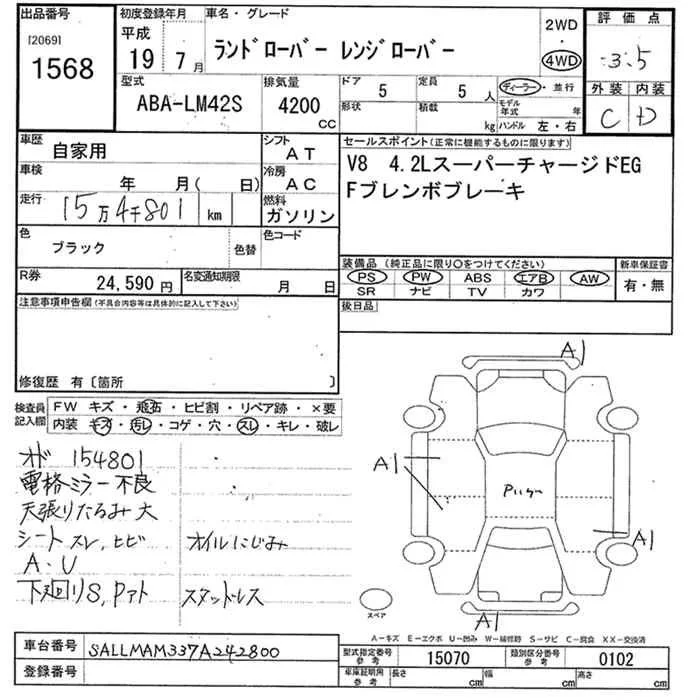 出品番号
[2069]
1568
初度登録年月
平成
19 7 月
車名・グレード
ランドローバー レンジローバー
2WD
・
4WD
評価点
3.5
外装 内装
C D
型式
ABA-LM42S
排気量
4200
CC
ドア 5
形状
定員 5 人
積載 kg
ディーラー・並行
モデル年式 年
ハンドル 左・右
車歴 自家用
シフト AT
車検 年 月( 日)
冷房 AC
走行 15万4千801 km
燃料 ガソリン
色 ブラック 色替
色コード
R券 24,590 円
名変通知期限 月 日
セールスポイント(正常に機能するものに限ります)
V8 4.2LスーパーチャージドEG
Fブレンボブレーキ
装備品 (純正品に限り○をつけてください)
PS PW ABS エアB AW
SR ナビ TV カワ
新車保証書
有・無
後日品
注意事項申告欄(不具合内容等は具体的に記入して下さい)
修復歴 有〔箇所 〕
検査員記入欄
FW キズ・飛石・ヒビ割・リペア跡・×要
内装 キズ・汚レ・コゲ・穴・スレ・キレ・破レ
オド 154801
電格ミラー不良
天張りたるみ大
シート スレ、ヒビ
オイルにじみ
A・U
下廻りS,Pアト
スタッドレス
A1
A1
A1
A1
スペア
A-キズ E-エクボ U-凹み W-補修跡 S-サビ C-腐食 XX-交換済
車台番号 SALLMAM337A242800
登録番号
型式指定番号 参考 15070
類別区分番号 参考 0102
車庫証明用 参考 長さ cm 幅 cm 高さ cm